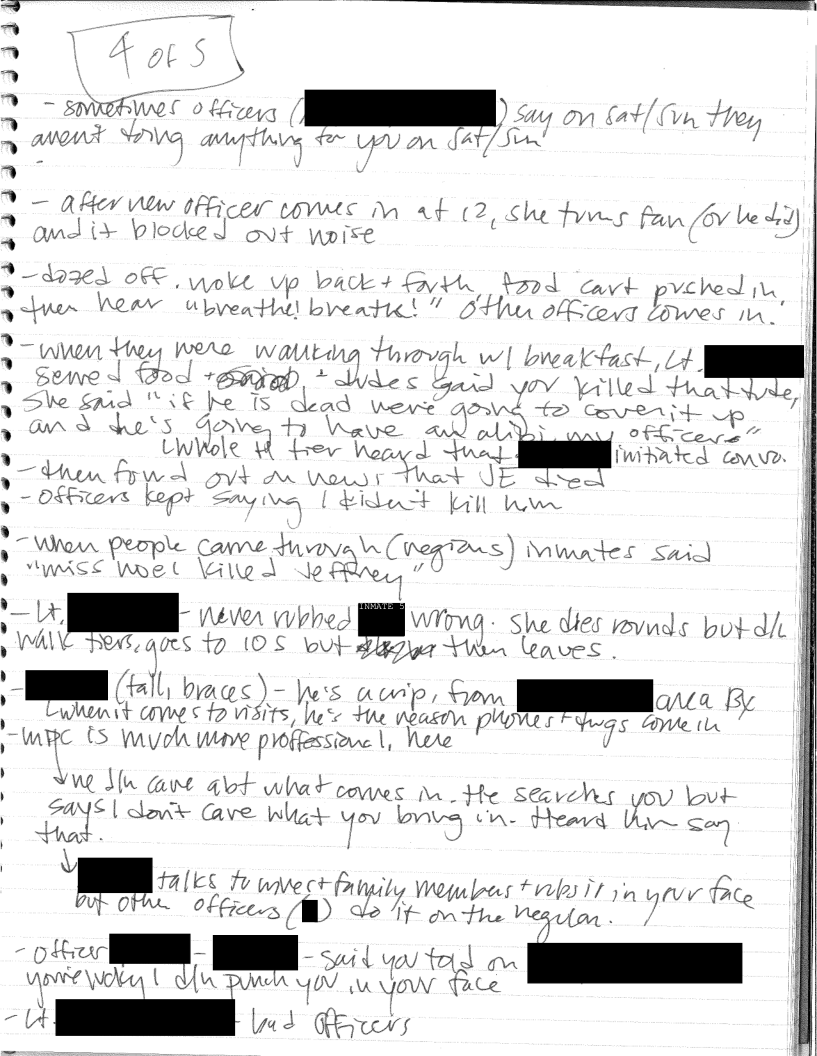 4 of 5
- sometimes officers ( ) say on sat/sun they
aren't doing anything for you on sat/sun
- after new officer comes in at 12, she turns fan (or he did)
and it blocked out noise
- dozed off. woke up back + forth, food cart pushed in,
then hear "breathe! breath!" Other officers comes in.
- when they were walking through w/ breakfast, Lt.
served food + dudes said you killed that dude,
she said "if he is dead we're going to cover it up
and he's going to have an alibi my officers"
whole tier heard that initiated convo.
- then found out on news that JE died
- officers kept saying I didn't kill him
- when people came through (regions) inmates said
"miss noel killed Jeffrey"
- Lt. - never rubbed INMATE 5 wrong. She does rounds but d/n
walk tiers, goes to 10 S but then leaves.
- (tall, braces) - he's a crip, from area Bx
when it comes to visits, he's the reason phones + drugs come in
- MDC is much more proffessional, here
he d/n care abt what comes in. He searches you but
says I don't care what you bring in - Heard him say
that.
talks to wives + family members + rubs it in your face
but other officers ( ) do it on the regular.
- officer - - said you told on
you're lucky I d/n punch you in your face
- Lt. - bad officers